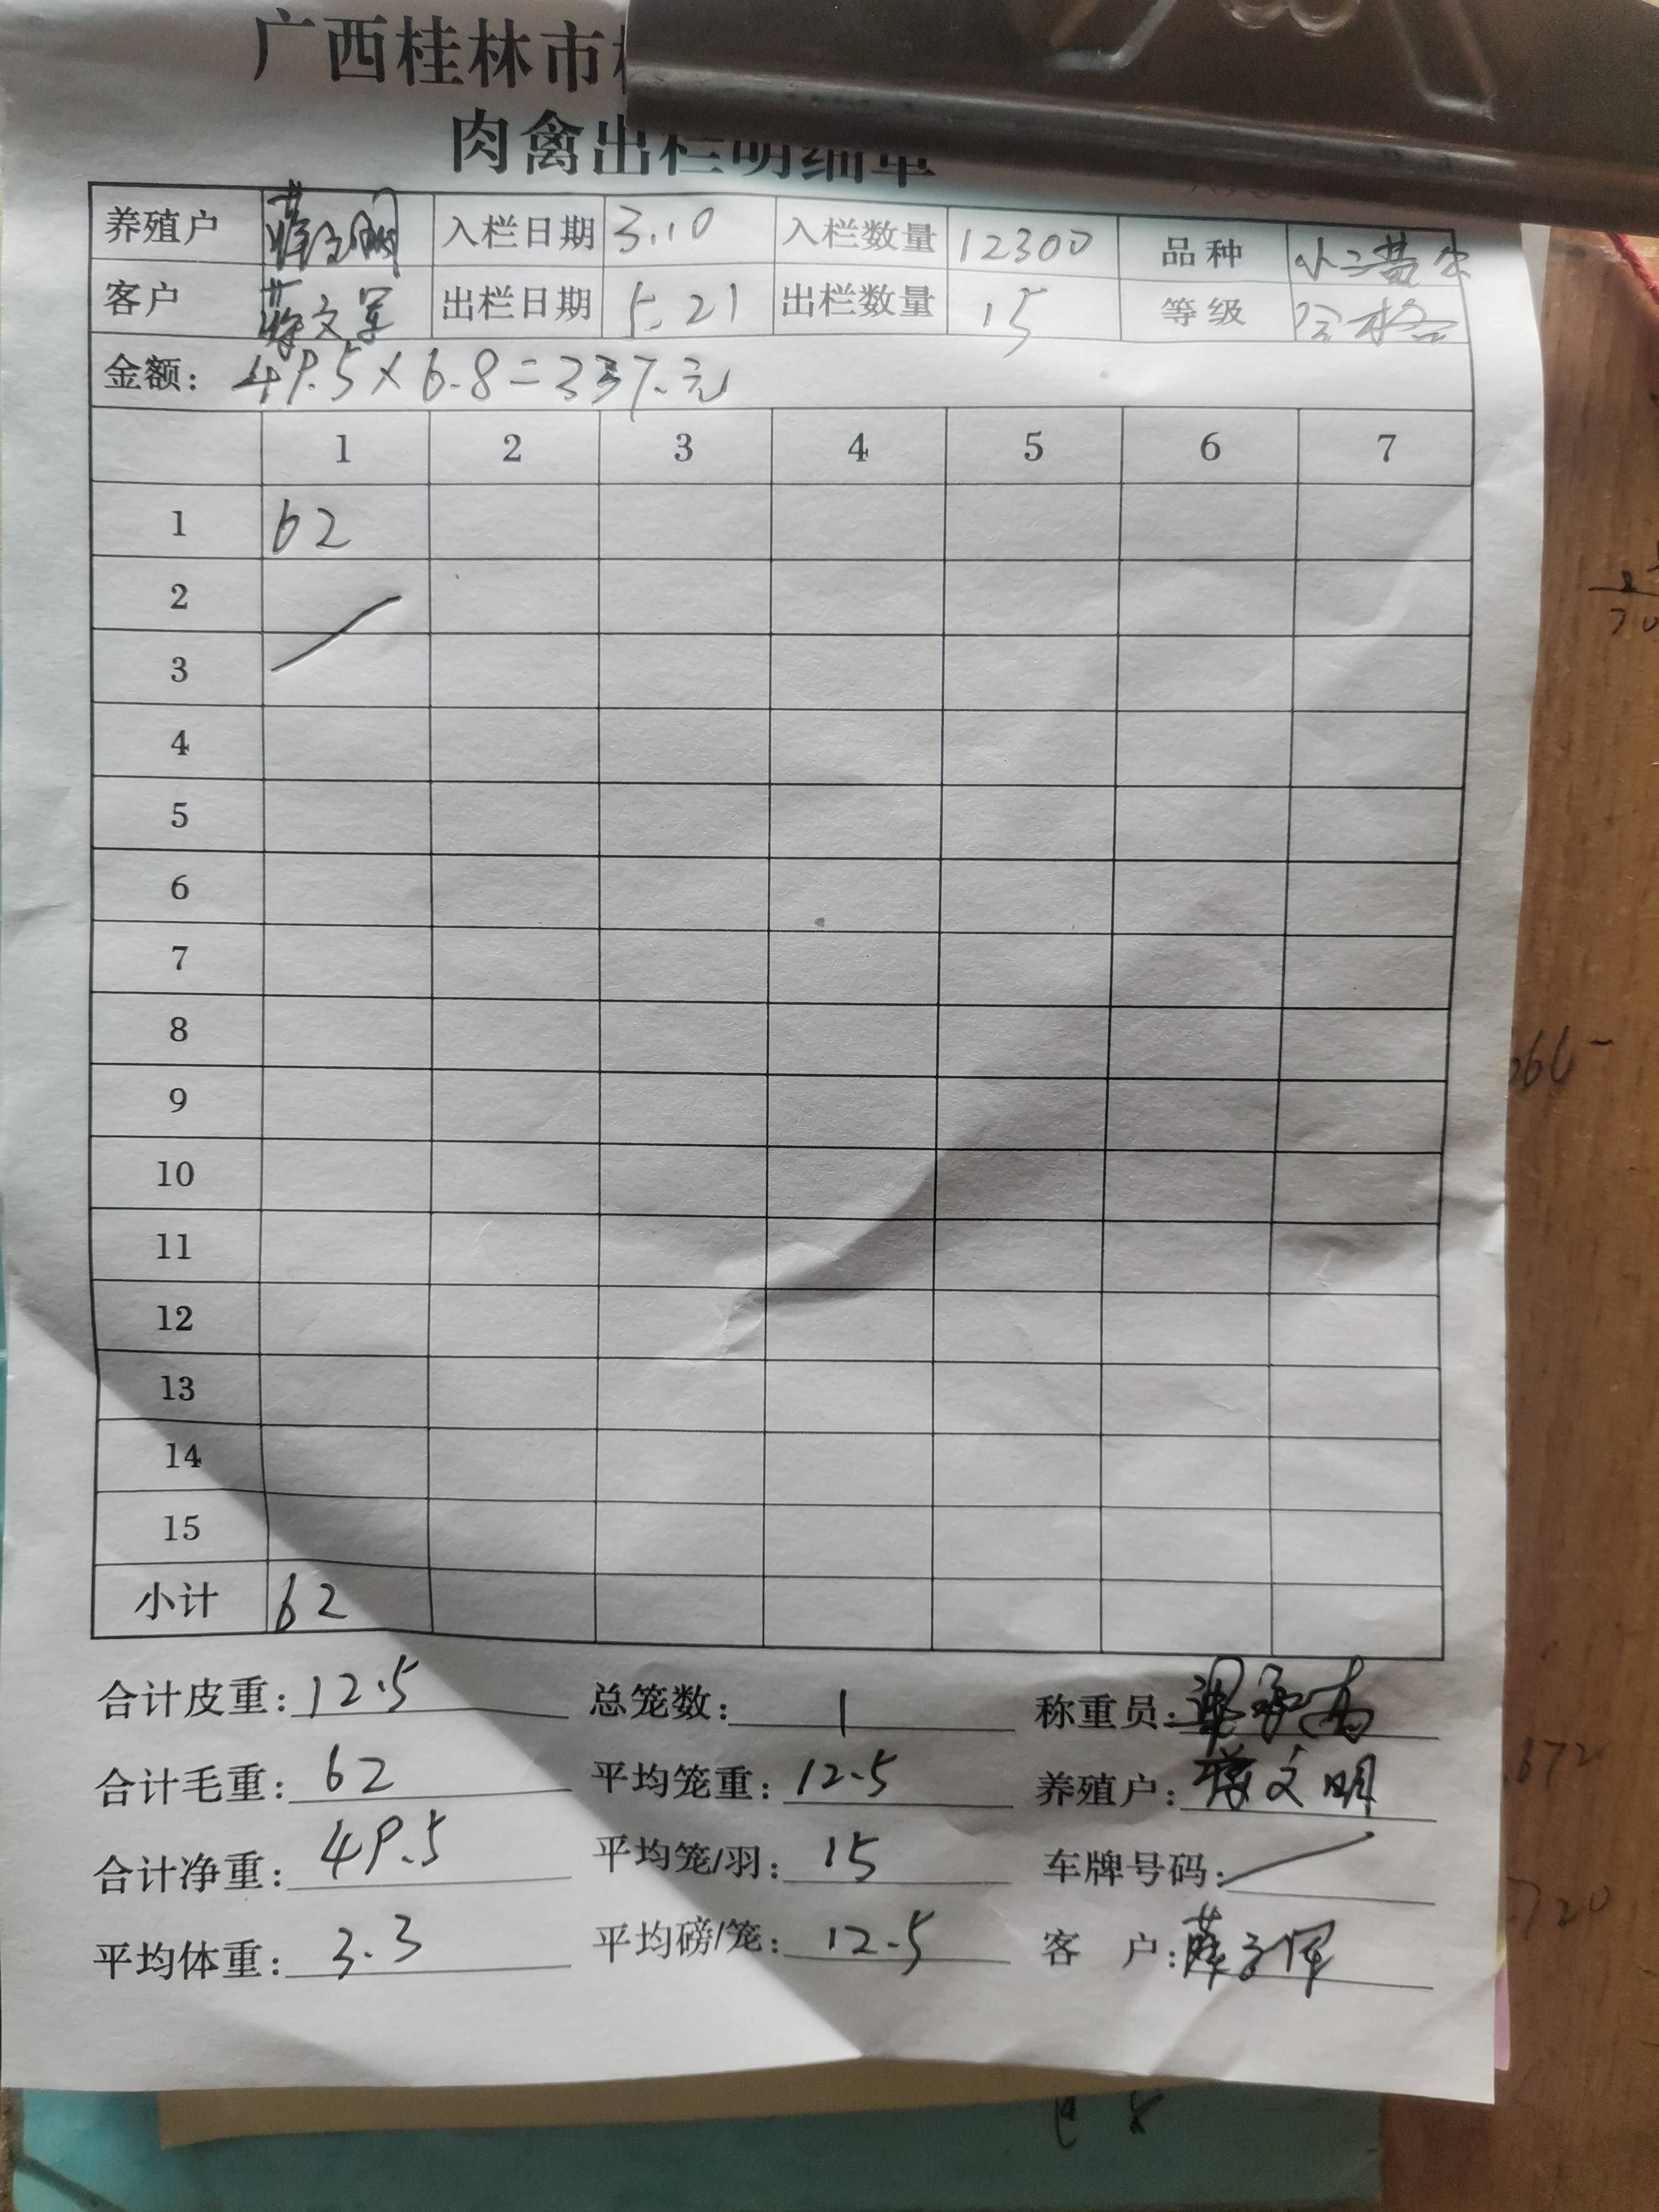 广西桂林市
肉禽出栏明细单
养殖户 入栏日期 3.10 入栏数量 12300 品种
客户 蒋文军 出栏日期 5.21 出栏数量 15 等级 合格
金额: 49.5×6.8=337.元
1 2 3 4 5 6 7
1 62
2
3
4
5
6
7
8
9
10
11
12
13
14
15
小计 62
合计皮重: 12.5 总笼数: 1 称重员:
合计毛重: 62 平均笼重: 12.5 养殖户: 蒋文明
合计净重: 49.5 平均笼/羽: 15 车牌号码:
平均体重: 3.3 平均磅/笼: 12.5 客 户:
672
720